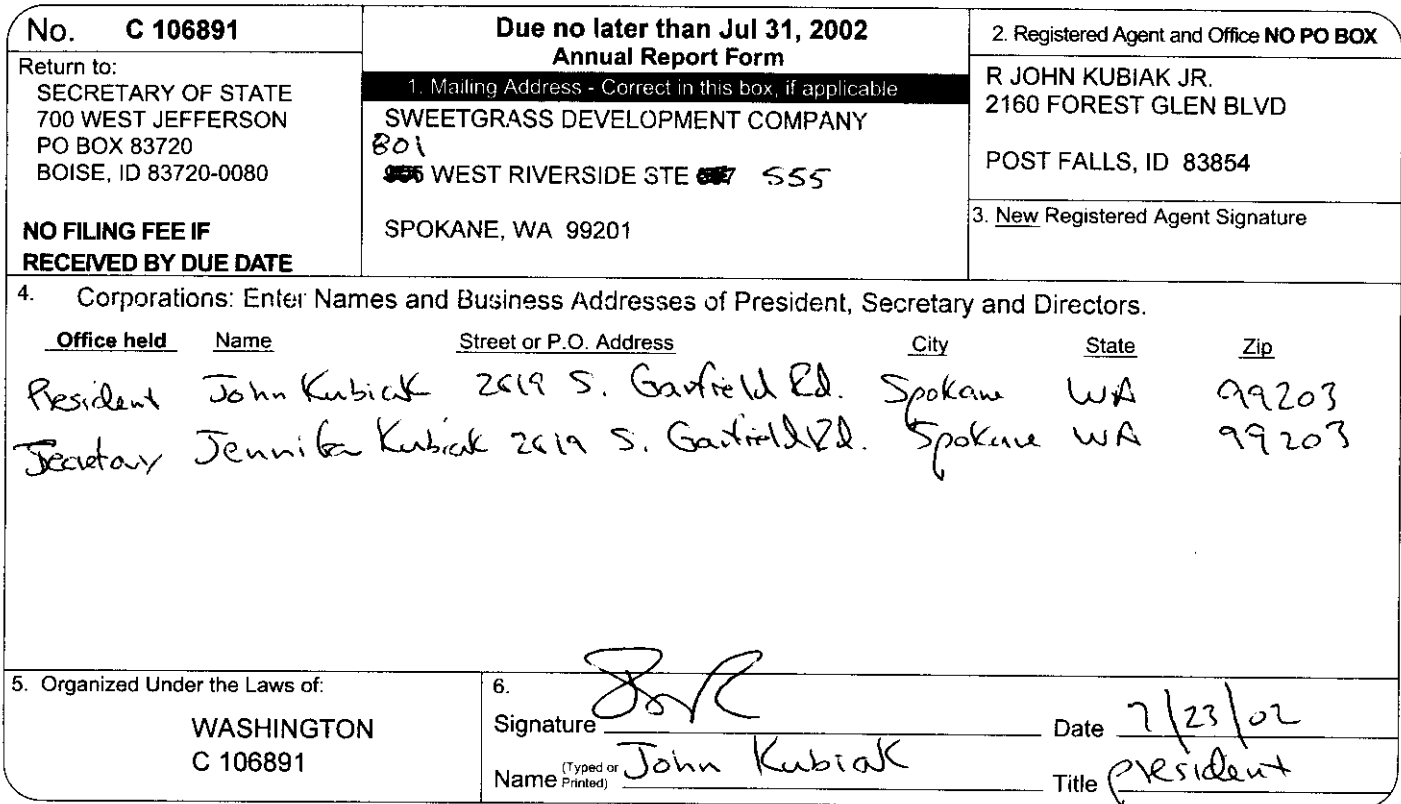 No. C 106891
Return to:
SECRETARY OF STATE
700 WEST JEFFERSON
PO BOX 83720
BOISE, ID 83720-0080
NO FILING FEE IF
RECEIVED BY DUE DATE
Due no later than Jul 31, 2002
Annual Report Form
1. Mailing Address - Correct in this box, if applicable
SWEETGRASS DEVELOPMENT COMPANY
801
WEST RIVERSIDE STE 555
SPOKANE, WA 99201
2. Registered Agent and Office NO PO BOX
R JOHN KUBIAK JR.
2160 FOREST GLEN BLVD
POST FALLS, ID 83854
3. New Registered Agent Signature
4. Corporations: Enter Names and Business Addresses of President, Secretary and Directors.
Office held Name Street or P.O. Address City State Zip
President John Kubiak 2619 S. Garfield Rd. Spokane WA 99203
Secretary Jennifer Kubiak 2619 S. Garfield Rd. Spokane WA 99203
5. Organized Under the Laws of:
WASHINGTON
C 106891
6.
Signature
Date 7/23/02
Name (Typed or Printed) John Kubiak
Title President